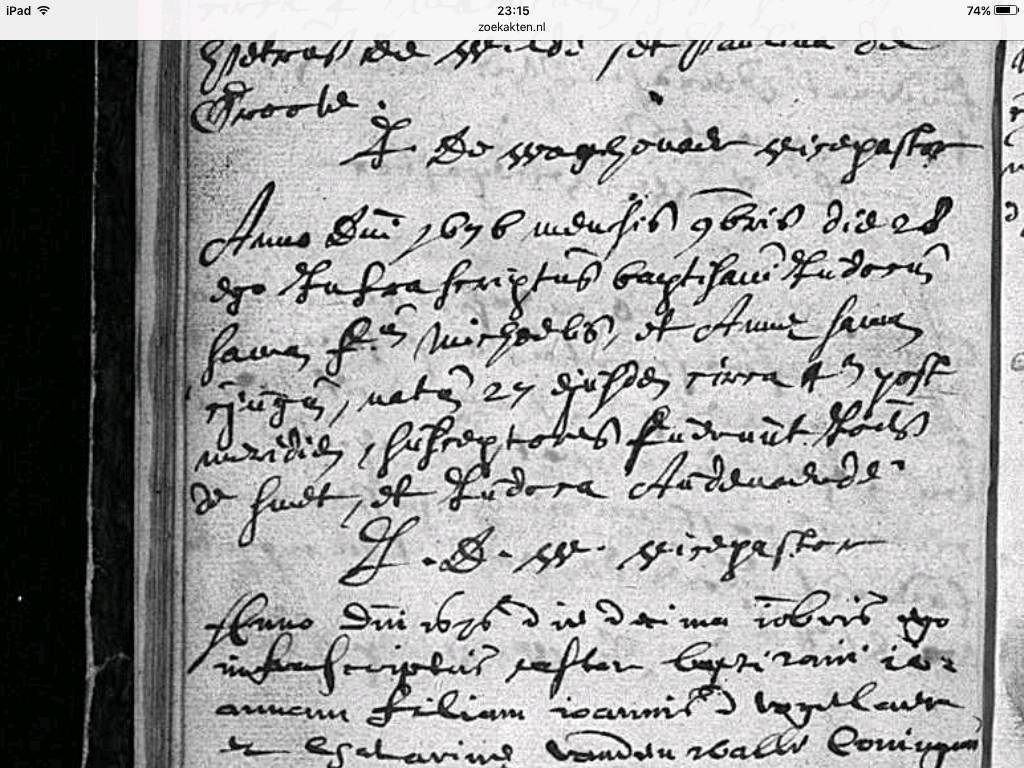 iPad 23:15 74%
zoekakten.nl
Petrus de Wilde, et Paulina de
Groote.
De Waghenaer vicepastor
Anno Dni 1676 mensis 9bris die 28
ego Infrascriptus baptisavi Judocū
f.ā Michaelis, et Annæ
cōjugū, natā 27 ejusdē circa 4ā post
meridiē, susceptores fuerunt Joēs
de smet, et Judoca Audenaerde
J. D. W. vicepastor
Anno Dni 1676 die decima 10bris ego
infrascriptus pastor baptizavi io-
annam filiam ioannis
et Catharinæ vanden walle coniugum